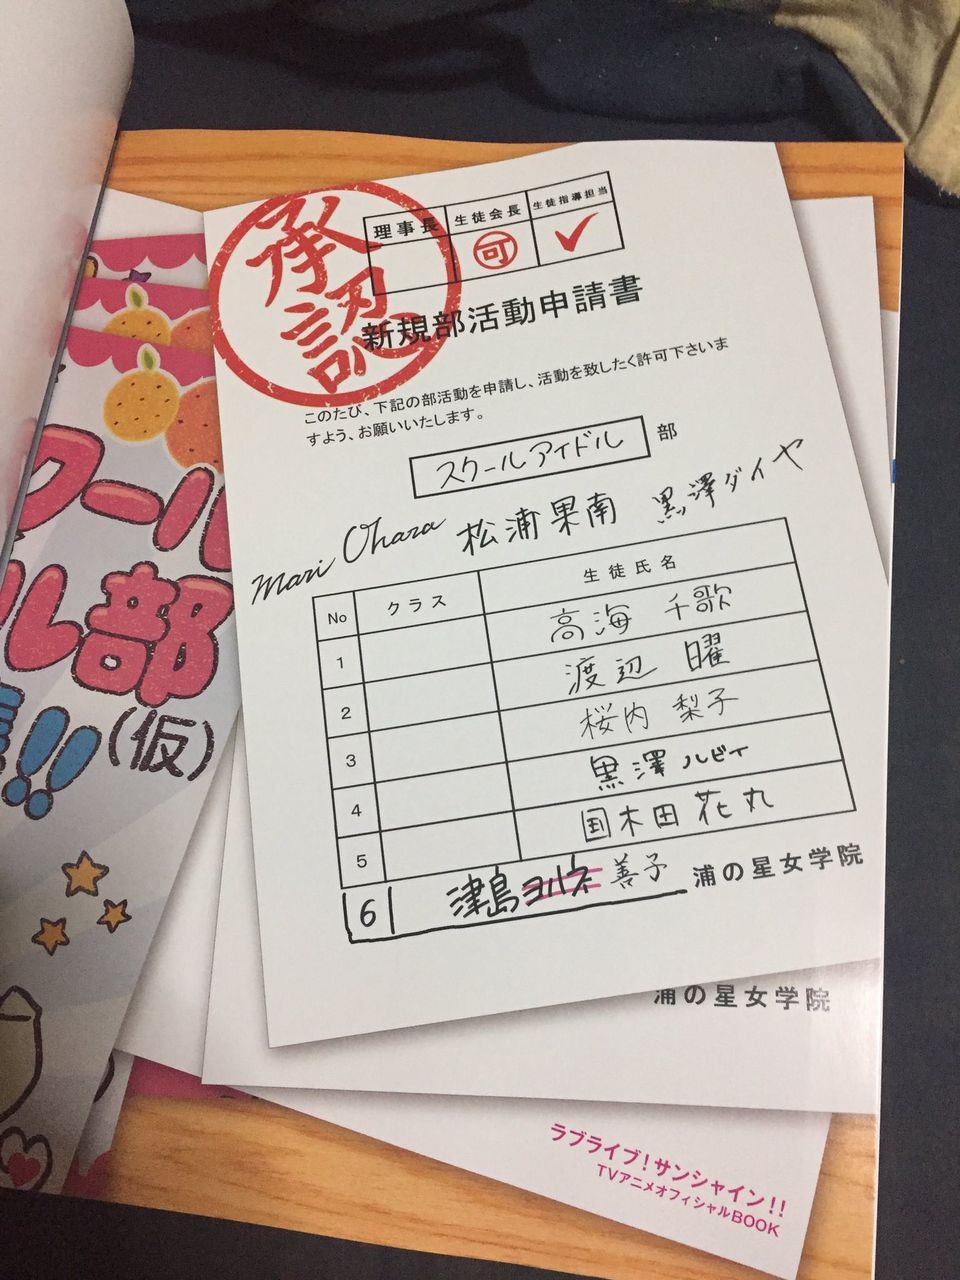 承認
理事長 生徒会長 生徒指導担当
可
新規部活動申請書
このたび、下記の部活動を申請し、活動を致したく許可下さいま
すよう、お願いいたします。
スクールアイドル 部
Mari Ohara 松浦果南 黒澤ダイヤ
No クラス 生徒氏名
1 高海 千歌
2 渡辺 曜
3 桜内 梨子
4 黒澤 ルビィ
5 国木田 花丸
6 津島ヨハネ 善子
浦の星女学院
浦の星女学院
クール
ル部
!!(仮)
ラブライブ!サンシャイン!!
TVアニメオフィシャルBOOK